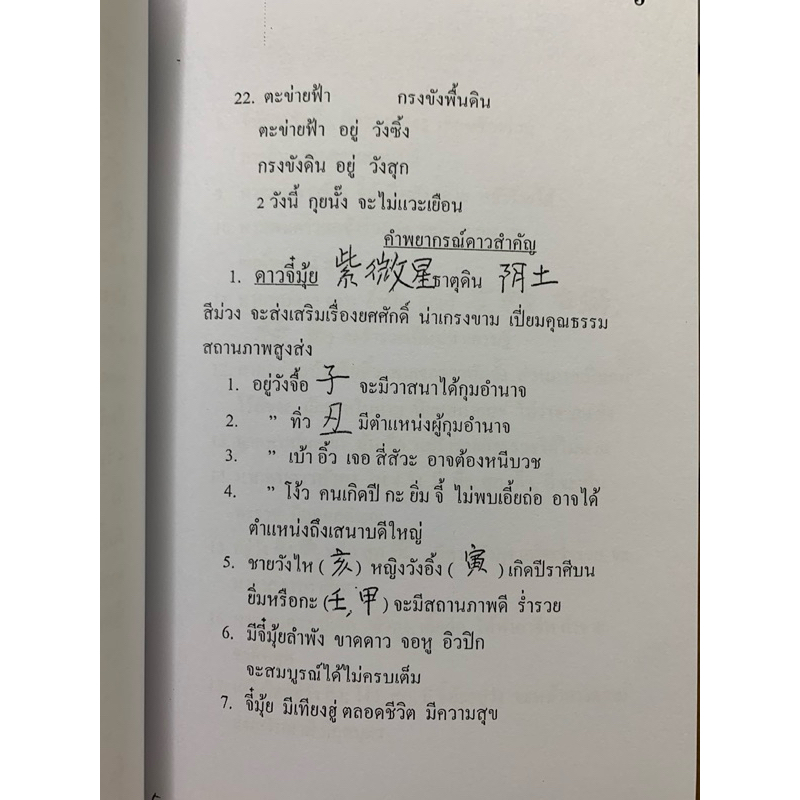 22. ตะข่ายฟ้า กรงขังพื้นดิน
ตะข่ายฟ้า อยู่ วังซิ้ง
กรงขังดิน อยู่ วังสุก
2 วังนี้ กุยนั้ง จะไม่แวะเยือน
คำพยากรณ์ดาวสำคัญ
1. ดาวจี๋มุ้ย 紫微星 ธาตุดิน 阴土
สีม่วง จะส่งเสริมเรื่องยศศักดิ์ น่าเกรงขาม เปี่ยมคุณธรรม
สถานภาพสูงส่ง
1. อยู่วังจื้อ 子 จะมีวาสนาได้กุมอำนาจ
2. " ทิ่ว 丑 มีตำแหน่งผู้กุมอำนาจ
3. " เบ้า อิ้ว เจอ สี่สัวะ อาจต้องหนีบวช
4. " โง้ว คนเกิดปี กะ ยิ่ม จี้ ไม่พบเอี้ยถ่อ อาจได้
ตำแหน่งถึงเสนาบดีใหญ่
5. ชายวังไห (亥) หญิงวังอิ้ง (寅) เกิดปีราศีบน
ยิ่มหรือกะ (壬, 甲) จะมีสถานภาพดี ร่ำรวย
6. มีจี๋มุ้ยลำพัง ขาดดาว จอหู อิวปิก
จะสมบูรณ์ได้ไม่ครบเต็ม
7. จี๋มุ้ย มีเทียงฮู่ ตลอดชีวิต มีความสุข